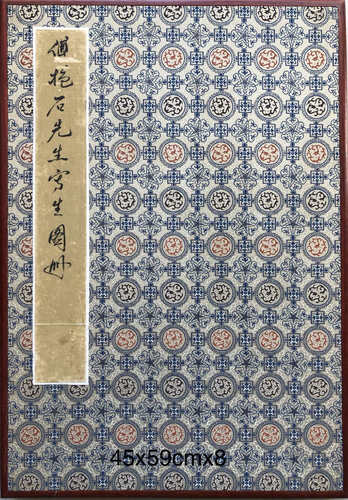 傅抱石先生写生图册
45x59cmx8